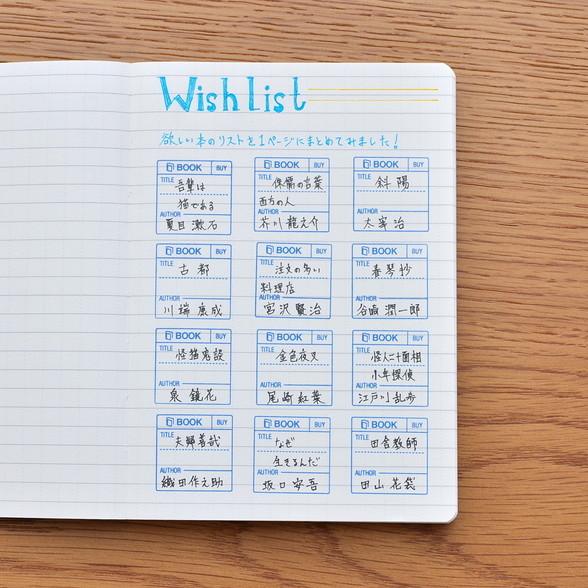 Wish List
欲しい本のリストを1ページにまとめてみました!
BOOK BUY
TITLE 吾輩は
猫である
AUTHOR
夏目漱石
BOOK BUY
TITLE 侏儒の言葉
西方の人
AUTHOR
芥川龍之介
BOOK BUY
TITLE 斜陽
AUTHOR
太宰治
BOOK BUY
TITLE 古都
AUTHOR
川端康成
BOOK BUY
TITLE 注文の多い
料理店
AUTHOR
宮沢賢治
BOOK BUY
TITLE 春琴抄
AUTHOR
谷崎潤一郎
BOOK BUY
TITLE 怪猫鬼談
AUTHOR
泉鏡花
BOOK BUY
TITLE 金色夜叉
AUTHOR
尾崎紅葉
BOOK BUY
TITLE 怪人二十面相
少年探偵
AUTHOR
江戸川乱歩
BOOK BUY
TITLE 夫婦善哉
AUTHOR
織田作之助
BOOK BUY
TITLE なぜ
生きるんだ
AUTHOR
坂口安吾
BOOK BUY
TITLE 田舎教師
AUTHOR
田山花袋